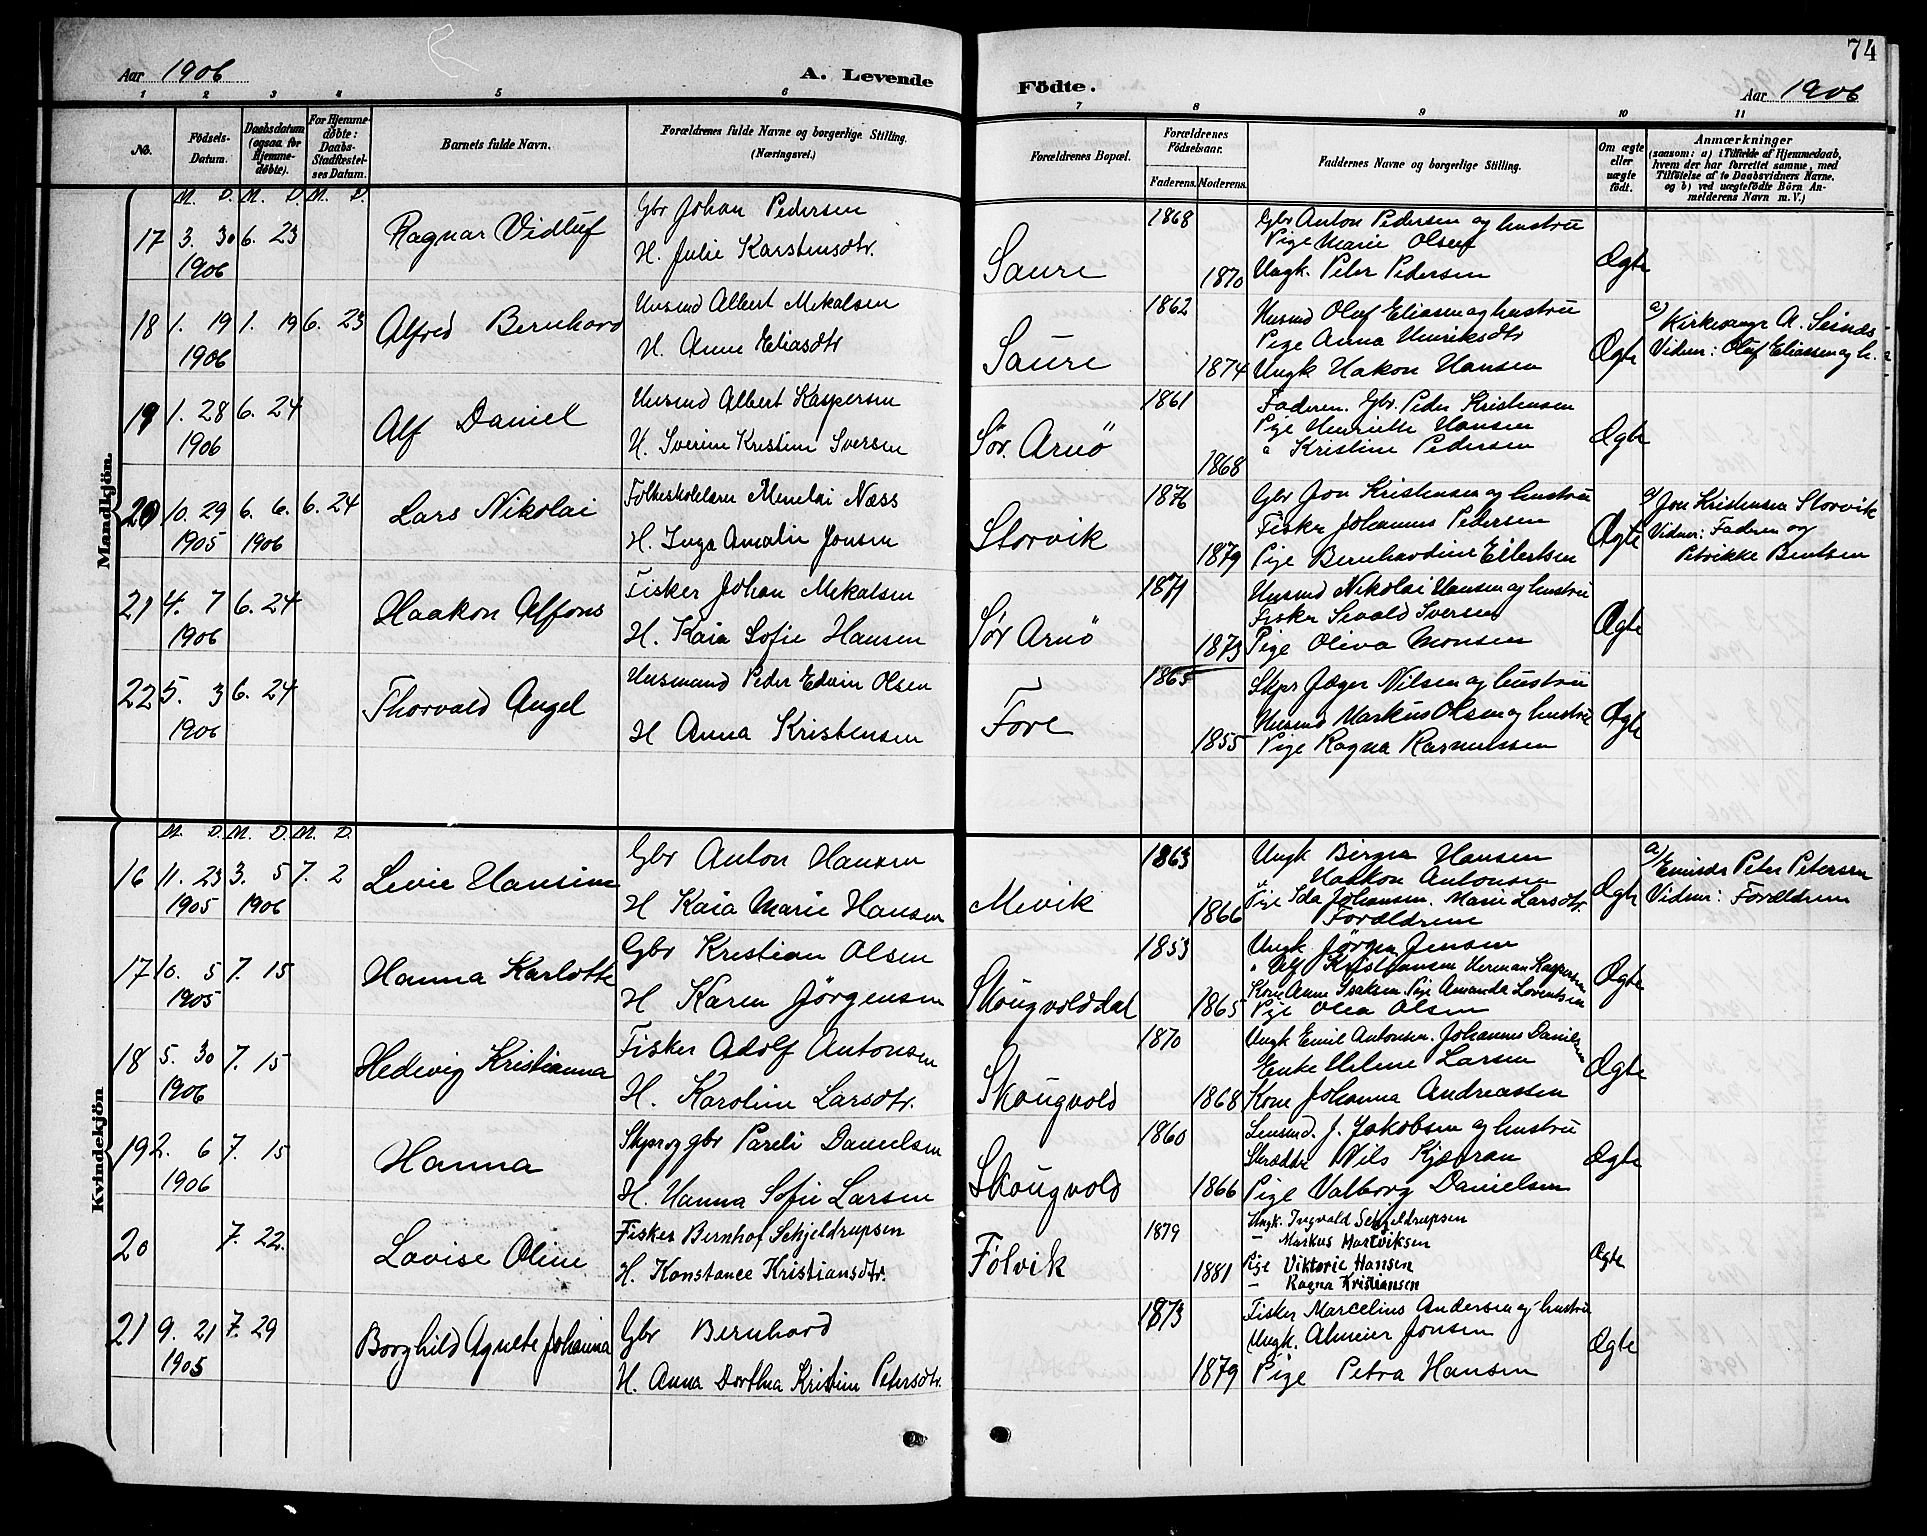 74
Aar 1906
A. Levende
Födte.
Aar 1906
1 2 3 4 5 6 7 8 9 10 11
No.
Födsels-Datum.
Daabsdatum (ogsaa for Hjemmedöbte).
For Hjemmedöbte: Daabs-Stadfæstelses Datum.
Barnets fulde Navn.
Forældrenes fulde Navne og borgerlige Stilling. (Næringsvei.)
Forældrenes Bopæl.
Forældrenes Födselsaar.
Faderens. Moderens.
Faddernes Navne og borgerlige Stilling.
Om ægte eller uægte födt.
Anmærkninger
(saasom: a) i Tilfælde af Hjemmedaab, hvem der har forrettet samme, med Tilföielse af to Daabsvidners Navne, og b) ved uægtefödte Börn Anmelderens Navn m. V.)
Mandkjön.
M. D. M. D. M. D.
17 3. 30 6. 23
1906
Ragnar Vidluf
Gbr Johan Pedersen
H. Julie Karstensdtr.
Saure
1868
1870
Gbr Anton Pedersen og hustru
Pige Marie Olsen
Ungk. Peter Pedersen
Ægte
18 1. 19 1. 19 6. 23
1906
Alfred Bernhard
Husmd Albert Mikalsen
H. Anne Eliasdtr
Saure
1862
1874
Husmd Oluf Eliassen og hustru
Pige Anna Henriksdtr
Ungk Hakon Hansen
Ægte
a) Kirkesanger A. Seines
Vidner: Oluf Eliassen og h.
19 1. 28 6. 24
1906
Alf Daniel
Husmd Albert Kaspersen
H. Iverine Kristine Iversen
Sør. Arnö
1861
1868
Faderen. Gbr. Peder Kristensen
Pige Henriette Hansen
" Kristine Pedersen
Ægte
20 10. 29 6. 6. 6. 24
1905 1906
Lars Nikolai
Folkeskolelærer Menelai Næss
H. Inga Amalie Jonsen
Storvik
1876
1879
Gbr Jon Kristensen og hustru
Fisker Johannes Pedersen
Pige Bernhardine Eilertsen
Ægte
a) Jon Kristensen Storvik
Vidner: Faderen og
Petrikke Bentsen
21 4. 7 6. 24
1906
Haakon Alfons
Fisker Johan Mikalsen
H. Kaia Sofie Hansen
Sør Arnö
1871
1873
Husmd Nikolai Hansen og hustru
Fisker Sivald Iversen
Pige Oliva Monsen
Ægte
22 5. 3 6. 24
1906
Thorvald Angel
Husmand Peder Edvin Olsen
H Anna Kristensen
Fore
1865
1855
Skpr Jæger Nilsen og hustru
Husmd Markus Olsen og hustru
Pige Ragna Rasmussen
Ægte
Kvindekjön
M. D. M. D. M. D.
16 11. 23 3. 5 7. 2
1905 1906
Levie Hansine
Gbr Anton Hansen
H Kaia Marie Hansen
Mevik
1863
1866
Ungk Birger Hansen
" Haakon Antonsen
Pige Ida Johansen. Marie Larsdtr.
Forældrene
Ægte
a) Emisær Peter Petersen
Vidner: Forældrene
17 10. 5 7. 15
1905
Hanna Karlotte
Gbr Kristian Olsen
H Karen Jörgensen
Skougvolddal
1853
1865
Ungk Jörgen Jensen
" Ulf Kristiansen Herman Kaspersen
Kone Anne Isaksen. Pige Amanda Lorentsen
Pige Olea Olsen
Ægte
18 5. 30 7. 15
1906
Hedevig Kristianna
Fisker Adolf Antonsen
H. Karoline Larsdtr.
Skougvold
1870
1868
Ungk Emil Antonsen. Johannes Danielsen
Enke Helene Larsen
Kone Johanna Andreassen
Ægte
19 2. 6 7. 15
1906
Hanna
Skpr og gbr Pareli Danielsen
H. Hanna Sofie Larsen
Skougvold
1860
1866
Lensmd. J. Jakobsen og hustru
Skrædder Nils Kjæran
Pige Valborg Danielsen
Ægte
20 7. 22.
Lovise Oline
Fisker Bernhof Schjeldrupsen
H. Konstance Kristiansdtr.
Følvik
1879
1881
Ungk. Ingvald Schjeldrupsen
— Markus Martviksen
Pige Viktorie Hansen
— Ragna Kristiansen
Ægte
21 9. 21 7. 29
1905
Borghild Agnete Johanna
Gbr Bernhard
H. Anna Dorthea Kristine Petersdtr.
1873
1879
Fisker Marcelius Andersen og hustru
Ungk. Almeier Jonsen
Pige Petra Hansen
Ægte